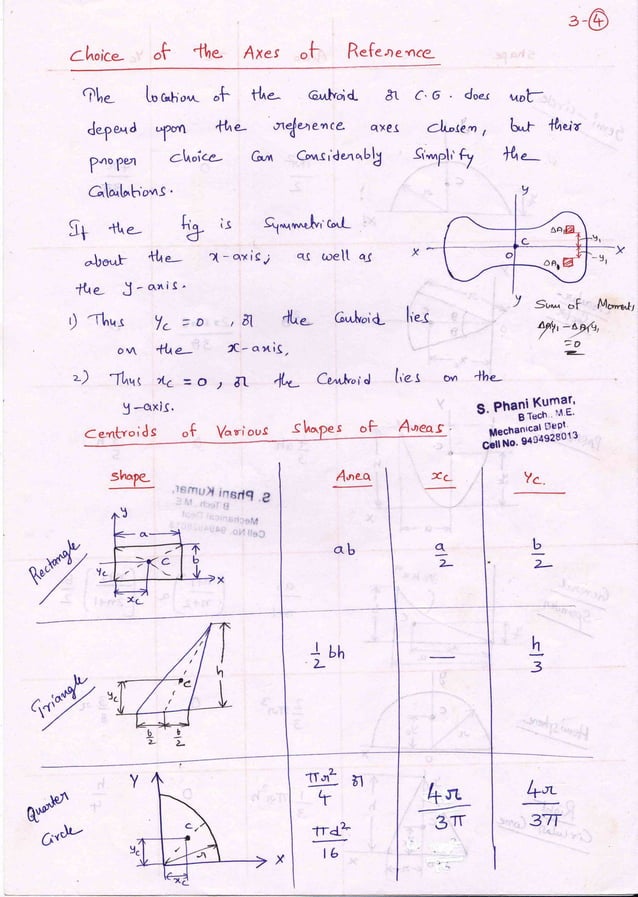 3-4
Choice of the Axes of Reference
The location of the Centroid or C.G. does not
depend upon the reference axes chosen, but their
proper choice can considerably simplify the
Calculations.
If the fig is Symmetrical
about the x-axis; as well as
the y-axis.
y
ΔA₁
y₁
x
C
x
O
ΔA₁
-y₁
y
Sum of Moments
ΔA₁y₁ - ΔA₁y₁
=0
1) Thus Yc = 0, or the Centroid lies
on the x-axis,
2) Thus xc = 0, or the Centroid lies on the
y-axis.
S. Phani Kumar,
B Tech., M.E.
Mechanical Dept.
Cell No. 9494928013
Centroids of Various Shapes of Areas.
Shape Area xc Yc.
Rectangle
y
a
yc
C
b
x
xc
ab a/2 b/2
Triangle
yc
C
h
b/2 b/2
1/2 bh — h/3
Quarter Circle
Y
C
yc
r
X
xc
πr²/4 or πd²/16 4r/3π 4r/3π